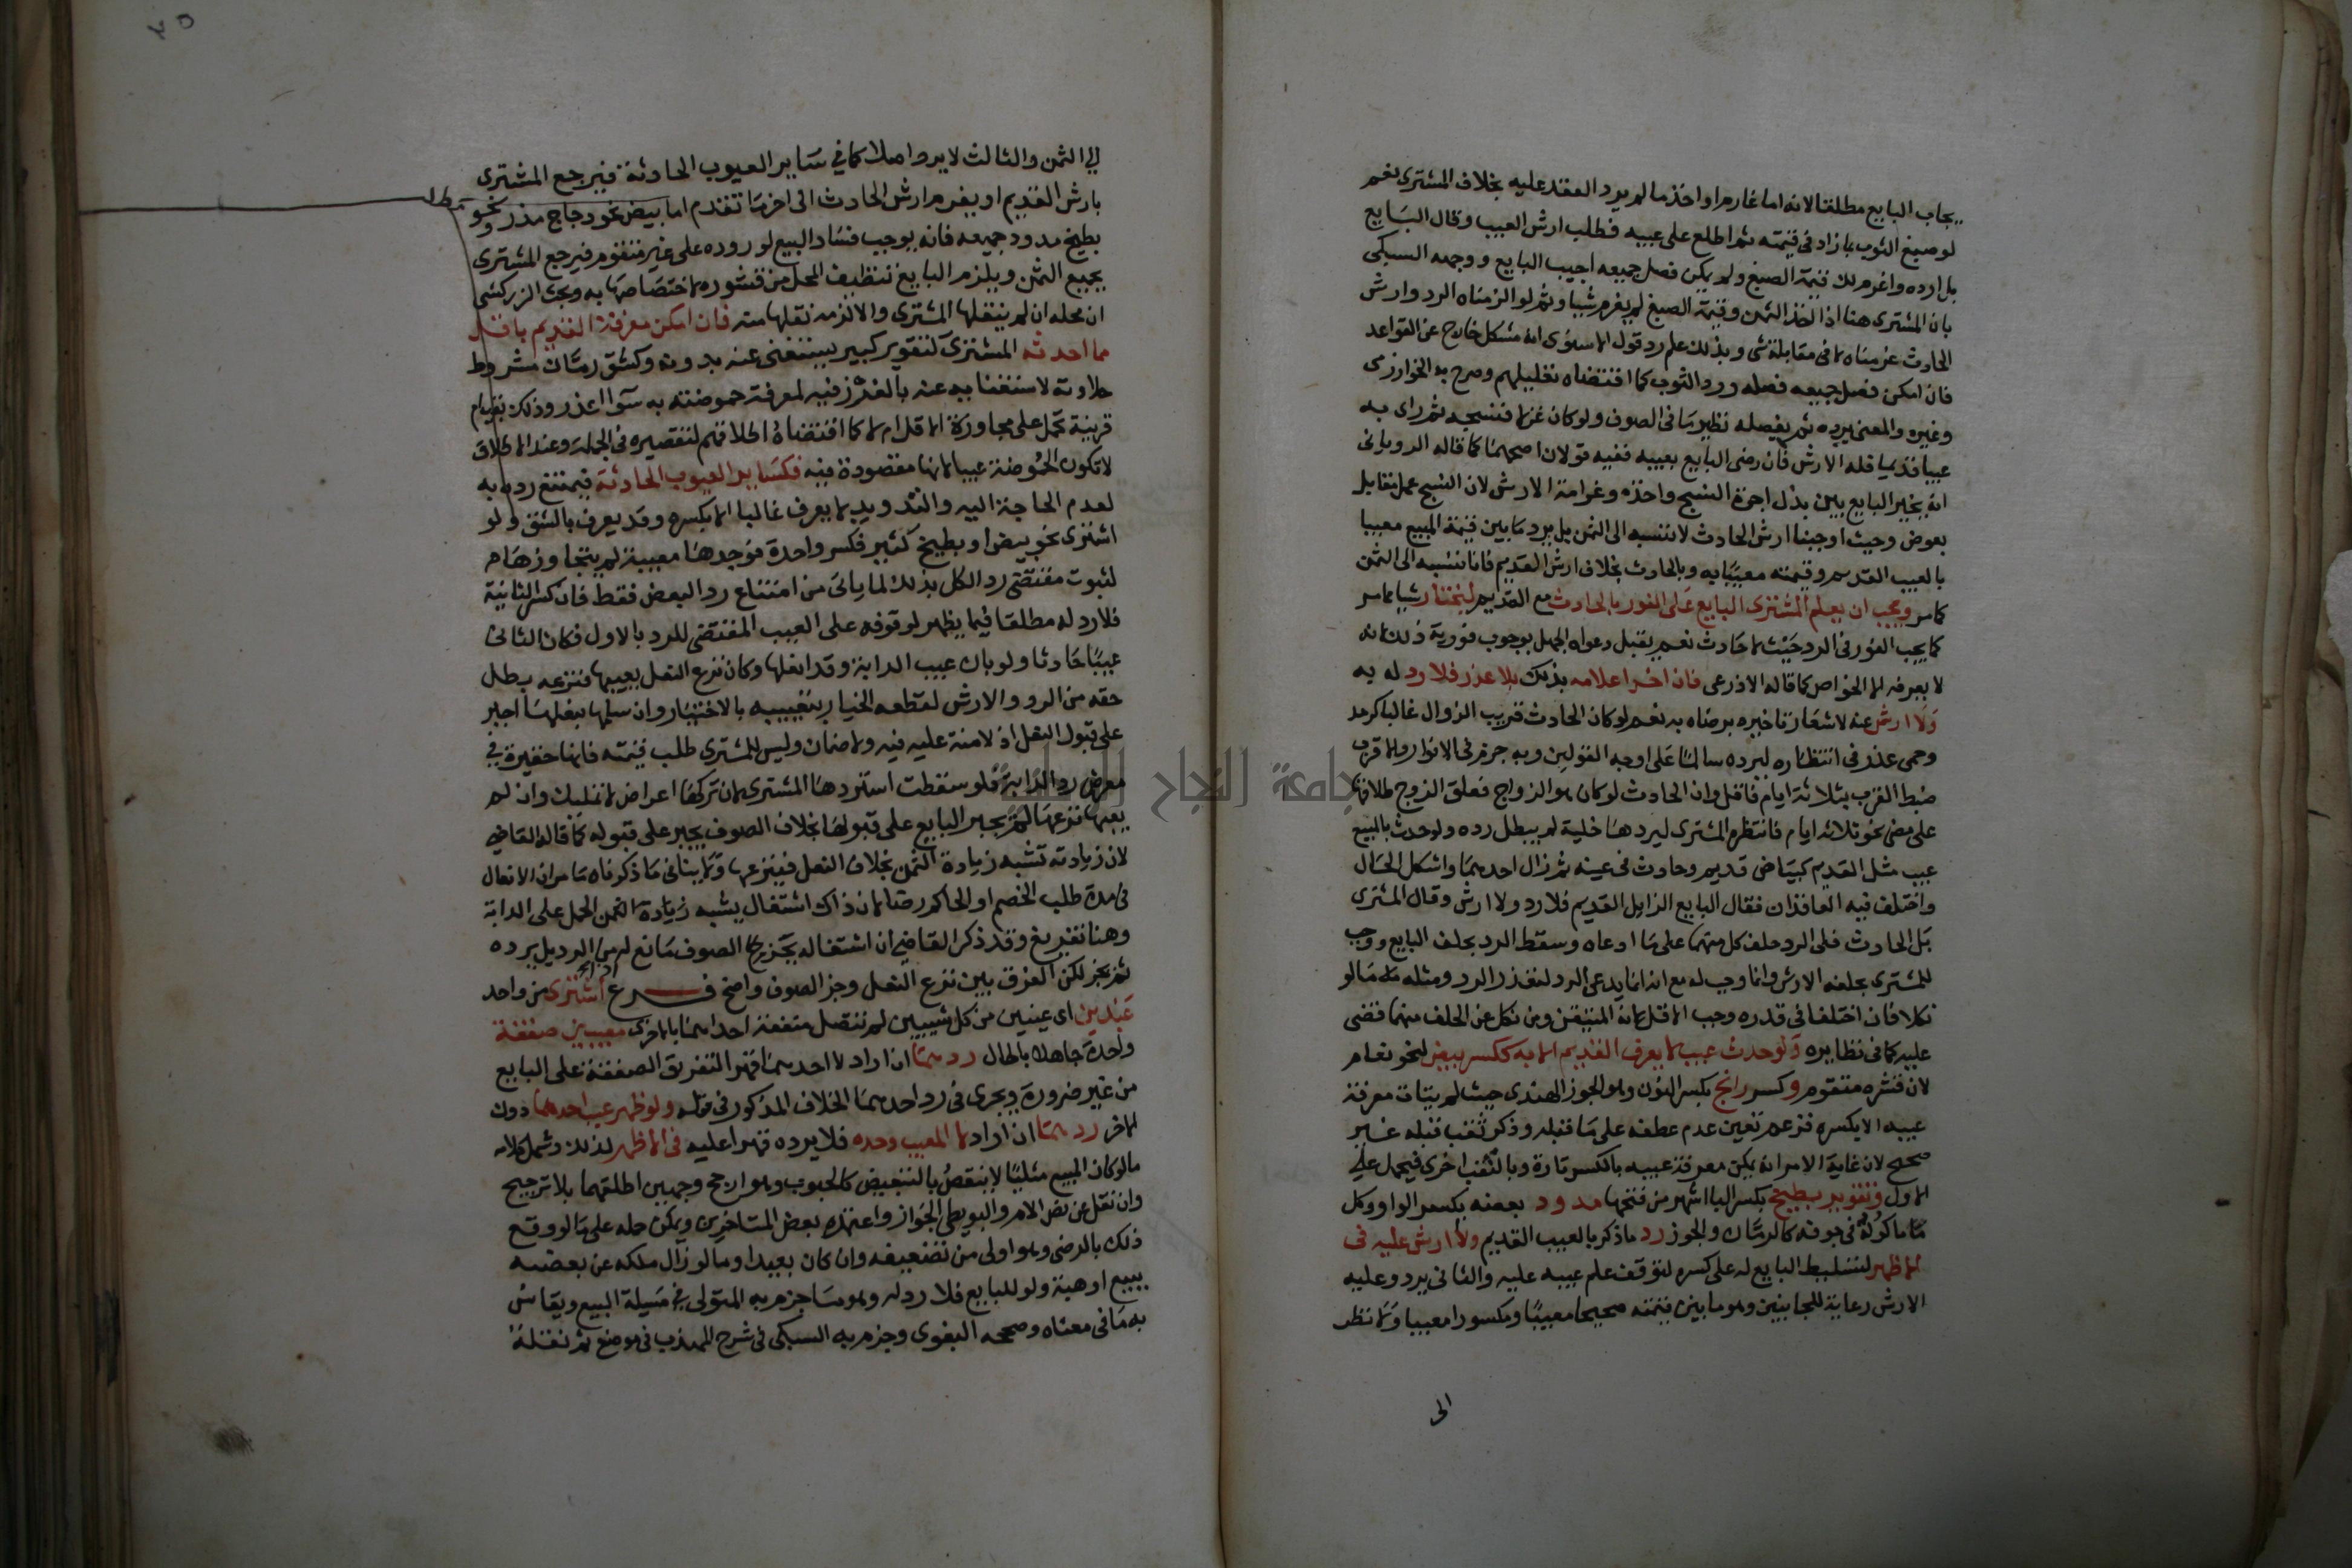 يجاب البايع مطلقا لانه اما غارم او اخذ ما لم يرد العقد عليه بخلاف المشتري نعم
لو صبغ الثوب بما زاد في قيمته ثم اطلع على عيبه فطلب ارش العيب وقال البايع
بل ارده واغرم لك قيمة الصبغ ولم يمكن فصل جميعه اجيب البايع ووجهه السبكي
بان المشتري هنا اذا اخذ الثمن وقيمة الصبغ لم يغرم شيا وثم لو الزمناه الرد وارش
الحادث غرمناه لا في مقابلة شي وبذلك علم رد قول الاسنوي انه مشكل خارج عن القواعد
فان امكن فصل جميعه فصله ورد الثوب كما اقتضاه تعليلهم وصرح به الخوارزمي
وغيره والمعنى يرده ثم يفصله نظير ما في الصوف ولو كان غزلا فنسجه ثم راى به
عيبا قديما فله الارش فان رضي البايع بعيبه ففيه قولان اصحهما كما قاله الروياني
انه يخير البايع بين بذل اجرة النسج واخذه وغرامة الارش لان النسج عمل مقابل
بعوض وحيث اوجبنا ارش الحادث لا ننسبه الى الثمن بل يرد ما بين قيمة المبيع معيبا
بالعيب القديم وقيمته معيبا به وبالحادث بخلاف ارش القديم فانا ننسبه الى الثمن
كما مر ويجب ان يعلم المشتري البايع على الفور بالحادث مع القديم ليختار شيا مما مر
كما يجب الفور في الرد حيث لا حادث نعم يقبل دعواه الجهل بوجوب فورية ذلك لانه
لا يعرفه الا الخواص كما قاله الاذرعي فان اخر اعلامه بذلك بلا عذر فلا رد له به
ولا ارش عنه لاشعار تاخيره برضاه به نعم لو كان الحادث قريب الزوال غالبا كرمد
وحمى عذر في انتظاره ليرده سالما على اوجه القولين وبه جزم في الانوار والاقرب
ضبط القرب بثلاثة ايام فاقل وان الحادث لو كان هو الزواج فعلق الزوج طلاقها
على مضي نحو ثلاثة ايام فانتظره المشتري ليردها خلية لم يبطل رده ولو حدث بالمبيع
عيب مثل القديم كبياض قديم وحادث في عينه ثم زال احدهما واشكل الحال
واختلف فيه العاقدان فقال البايع الزايل القديم فلا رد ولا ارش وقال المشتري
بل الحادث فلي الرد حلف كل منهما على ما ادعاه وسقط الرد بحلف البايع ووجب
للمشتري بحلفه الارش وانما وجب له مع انه انما يدعي الرد لتعذر الرد ومثله ما لو
نكلا فان اختلفا في قدره وجب الاقل لانه المتيقن ومن نكل عن الحلف منهما قضي
عليه كما في نظايره ولو حدث عيب لا يعرف القديم الا به ككسر بيض لنحو نعام
لان قشره متقوم وكسر رانج بكسر النون وهو الجوز الهندي حيث لم يتات معرفة
عيبه الا بكسره فزعم تعين عدم عطفه على ما قبله وذكر ثقب قبله غير
صحيح لان غاية الامر انه يمكن معرفة عيبه بالكسر تارة وبالثقب اخرى فيحمل على
الاول وتقوير بطيخ بكسر البا اشهر من فتحها مدود بعضه بكسر الواو وكل
ما ماكوله في جوفه كالرمان والجوز رد ما ذكر بالعيب القديم ولا ارش عليه في
الاظهر لتسليط البايع له على كسره لتوقف علم عيبه عليه والثاني يرد وعليه
الارش رعاية للجانبين وهو ما بين قيمته صحيحا معيبا ومكسورا معيبا ولا نظر
الى
الى الثمن والثالث لا يرد اصلا كما في ساير العيوب الحادثة فيرجع المشتري
بارش القديم او يغرم ارش الحادث الى اخر ما تقدم اما بيض نحو دجاج مذر ونحو
بطيخ مدود جميعه فانه يوجب فساد البيع لوروده على غير متقوم فيرجع المشتري
بجميع الثمن ويلزم البايع تنظيف المحل من قشوره لاختصاصها به وبحث الزركشي
ان محله ان لم ينقلها المشتري والا لزمه نقلها منه فان امكن معرفة القديم باقل
مما احدثه المشتري كتقوير كبير يستغنى عنه بدونه وكشق رمان مشروط
حلاوته لاستغنايه عنه بالغرز فيه لمعرفة حموضته به سوا اعذر وذلك بقيام
قرينة تحمل على مجاوزة الاقل ام لا كما اقتضاه اطلاقهم لتقصيره في الجملة وعند الاطلاق
لا تكون الحموضة عيبا لانها مقصودة فيه فكساير العيوب الحادثة فيمتنع رده به
لعدم الحاجة اليه والتدويد لا يعرف غالبا الا بكسره وقد يعرف بالشق ولو
اشترى نحو بيض او بطيخ كثير فكسر واحدة فوجدها معيبة لم يتجاوزها
لثبوت مقتضى رد الكل بذلك لما ياتي من امتناع رد البعض فقط فان كسر الثانية
فلا رد له مطلقا فيما يظهر لوقوفه على العيب المقتضي للرد بالاول فكان الثاني
عيبا حادثا ولو بان عيب الدابة وقد انعلها وكان نزع النعل يعيبها فنزعه بطل
حقه من الرد والارش لقطعه الخيار بتعييبه بالاختيار وان سلمها بنعلها اجبر
على قبول النعل اذ لا منة عليه فيه ولا ضمان وليس للمشتري طلب قيمته فانها حقيرة في
معرض رد الدابة فلو سقطت استردها المشتري لان تركها اعراض لا تمليك وان لم
يعبها نزعها لم يجبر البايع على قبولها بخلاف الصوف يجبر على قبوله كما قاله القاضي
لان زيادته تشبه زيادة الثمن بخلاف النعل فينزعها ولا ينافي ما ذكرناه ما مر ان الانعال
في مدة طلب الخصم او الحاكم رضا لان ذاك اشتغال يشبه زيادة الثمن الحمل على الدابة
وهنا تفريغ وقد ذكر القاضي ان اشتغاله بجز الصوف مانع له من الرد بل يرده
ثم يجز لكن الفرق بين نزع النعل وجز الصوف واضح فرع اشترى من واحد
عبدين اي عينين من كل شيئين لم تتصل منفعة احداهما بالاخرى معيبين صفقة
واحدة جاهلا بالحال ردهما ان اراد لا احدهما قهرا لتفريق الصفقة على البايع
من غير ضرورة ويجري في رد احدهما الخلاف المذكور في قوله ولو ظهر عيب احدهما دون
الاخر ردهما ان اراد لا المعيب وحده فلا يرده قهرا عليه في الاظهر لذلك وشمل كلامه
ما لو كان المبيع مثليا لا ينقص بالتبعيض كالحبوب وهو ارجح وجهين اطلقهما بلا ترجيح
وان نقل عن نص الام والبويطي الجواز واعتمده بعض المتاخرين ويمكن حمله على ما لو وقع
ذلك بالرضى وهو اولى من تضعيفه وان كان بعيدا وما لو زال ملكه عن بعضه
ببيع او هبة ولو للبايع فلا رد له وهو ما جزم به المتولي في مسيلة البيع ويقاس
به ما في معناه وصححه البغوي وجزم به السبكي في شرح المهذب في موضع ثم نقله
جامعة النجاح